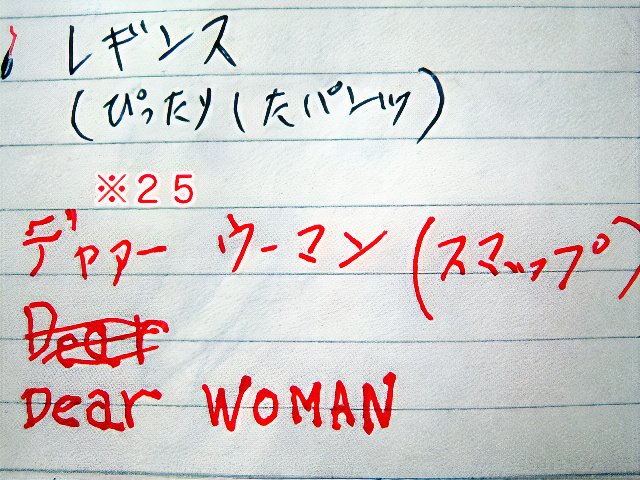 レギンス
(ぴったりしたパンツ)
※25
デァァー ウーマン(スマップ)
Dear
Dear WOMAN